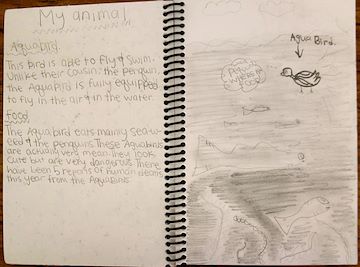 My animal
Aquabird.
This bird is able to fly & Swim.
Unlike their cousin, the penquin,
the Aquabird is fully equipped
to fly in the air & in the water.
Food
The Aquabird eats mainly sea-w-
eed & the penquins. These Aquabirds
are actually very mean. They look
cute but are very dangerous. There
have been 6 reports of human deaths
this year from the Aquabirds.
Aqua Bird.